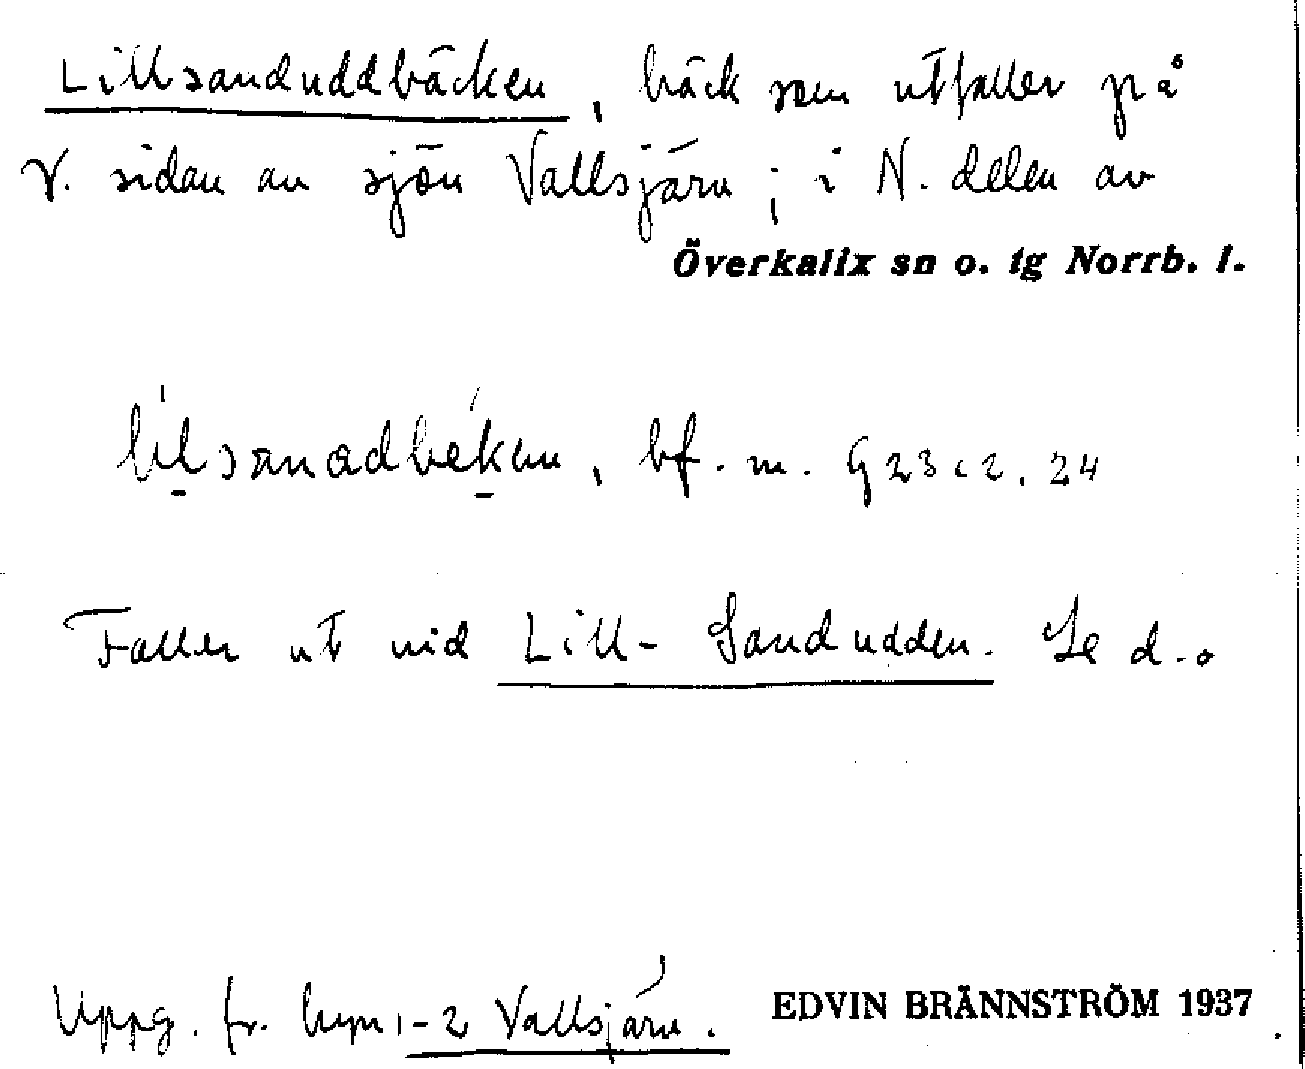 Lillsanduddbäcken, bäck som utfaller på
V. sidan av sjön Vallsjärv; i N. delen av
Överkalix sn o. tg Norrb. l.
bf. m.
Faller ut vid Lill-Sandudden. Se d.o
Uppg. fr. hmn 1-2 Vallsjärv.
EDVIN BRÄNNSTRÖM 1937